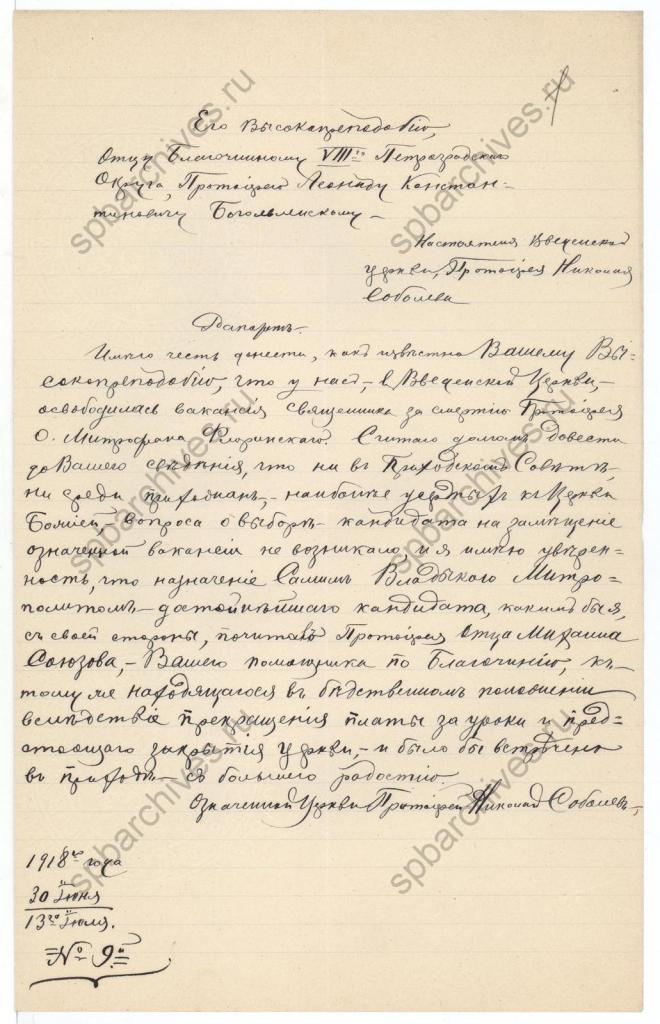 1
Его Высокопреподобію,
Отцу Благочинному VIIIго Петроградскаго
Округа, Протоіерею Леониду Констан-
тиновичу Богоявленскому –
Настоятеля Введенской
церкви, Протоіерея Николая
Соболева
Рапортъ.
Имѣю честь донести, какъ извѣстно Вашему Вы-
сокопреподобію, что у насъ, – въ Введенской Церкви, –
освободилась вакансія священника за смертію Протоіерея
О. Митрофана Флоринскаго. Считаю долгомъ довести
до Вашего свѣдѣнія, что ни въ Приходскомъ Совѣтѣ,
ни среди прихожанъ, – наиболѣе усердныхъ къ Церкви
Божіей, – вопроса о выборѣ кандидата на замѣщеніе
означенной вакансіи не возникало, и я имѣю увѣрен-
ность, что назначеніе Самимъ Владыкою Митро-
политомъ – достойнѣйшаго кандидата, какимъ бы я,
съ своей стороны, почиталъ Протоіерея Отца Михаила
Союзова, – Вашего помощника по Благочинію, къ
тому же находящагося въ бѣдственномъ положеніи
вслѣдствіе прекращенія платы за уроки и пред-
стоящаго закрытія церкви, – и было бы встрѣчено
въ приходѣ – съ большою радостію.
Означенной Церкви Протоіерей Николай Соболевъ,
1918го года
30 Іюня
13го Іюля.
№ 9й
spbarchives.ru
spbarchives.ru
spbarchives.ru
spbarchives.ru
spbarchives.ru
spbarchives.ru